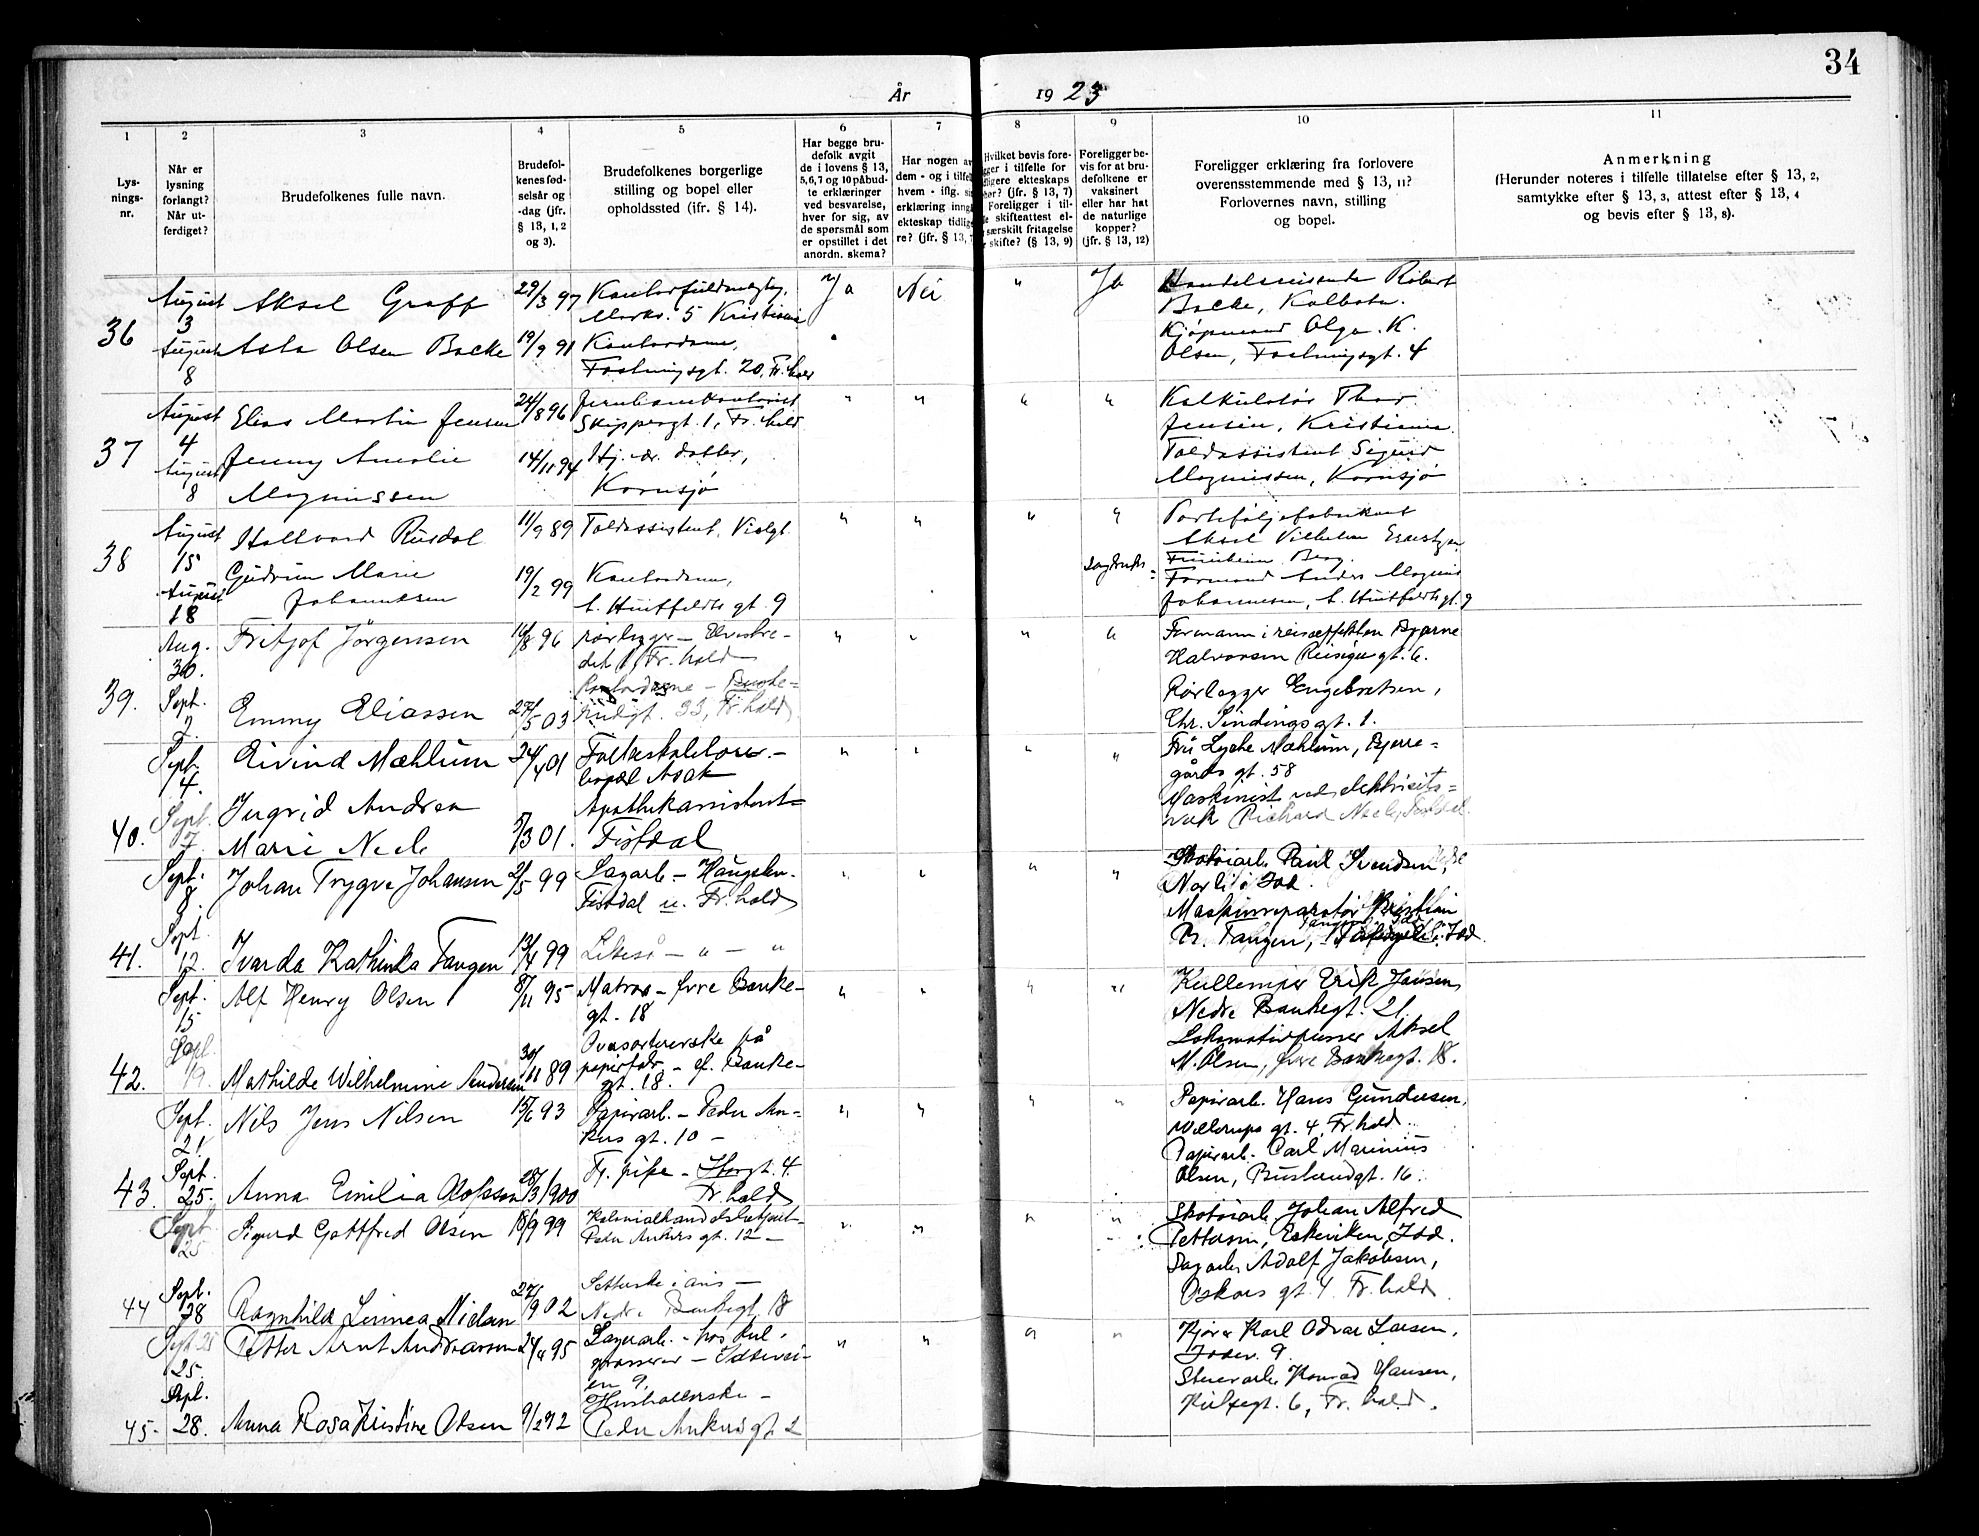 34
År 1923
1 2 3 4 5 6 7 8 9 10 11
Lys-
nings-
nr.
Når er
lysning
forlangt?
Når ut-
ferdiget?
Brudefolkenes fulle navn.
Brudefol-
kenes fød-
selsår og
-dag (jfr.
§ 13, 1, 2
og 3).
Brudefolkenes borgerlige
stilling og bopel eller
opholdssted (ifr. § 14).
Har begge bru-
defolk avgit
de i lovens § 13,
5, 6, 7 og 10 påbud-
te erklæringer
ved besvarelse,
hver for sig, av
de spørsmål som
er opstillet i det
anordn. skema?
Har nogen av
dem - og i tilfel
hvem - iflg. si
erklæring inng
ekteskap tidlig
re? (jfr. § 13,
Hvilket bevis fore-
gger i tilfelle for
dligere ekteskaps
ør? (jfr. § 13, 7)
Foreligger i til-
le skifteattest el-
særskilt fritagelse
skifte? (§ 13, 9)
Foreligger be-
vis for at bru-
defolkene er
vaksinert
eller har hat
de naturlige
kopper?
(jfr. § 13, 12)
Foreligger erklæring fra forlovere
overensstemmende med § 13, 11?
Forlovernes navn, stilling
og bopel.
Anmerkning
(Herunder noteres i tilfelle tillatelse efter § 13, 2,
samtykke efter § 13, 3, attest efter § 13, 4
og bevis efter § 13, 8).
36
August
3
August
8
Aksel Graff
Asta Olsen Bakke
29/3 97
19/9 91
Kontorfuldmegtig,
Markv. 5 Kristiania
Kontordame,
Fæstningsgt. 20, Fr.hald
Ja Nei " Ja
Handelsreisende Robert
Bakke, Kolbotn.
Kjøpmand Olga K.
Olsen, Fæstningsgt. 4
37
August
4
August
8
Elias Martin Jensen
Jenny Amalie
Magnussen
24/8 96
14/11 94
Jernbanekontorist
Skippergt. 1, Fr.hald
Hj. vær. datter,
Kornsjø
" " " "
Kalkulatør Thor
Jensen, Kristiania.
Toldassistent Sigurd
Magnussen, Kornsjø
38
August
15
August
18
Hallvard Rusdal
Gudrun Marie
Johannesen
11/9 89
19/2 99
Toldassistent, Violgt.
Kontordame,
A. Huitfeldts gt. 9
" " " "
Porteføljefabrikant
Aksel Vilhelm
Berg.
Formand Anders Magnus
Johannesen, A. Huitfeldts gt. 9
39.
Aug.
30.
Sept.
2.
Fritjof Jörgensen
Emmy Eliassen
16/8 96
27/5 03
rørlegger – Elvebre-
det 1, Fr. hald
Kontordame – Buske-
rudgt. 33, Fr. hald
" " " "
Formann i reiseeffekten Bjarne
Halvorsen Reisigergt. 6.
Rørlegger Engebretsen,
Chr. Sindings gt. 1.
40.
Sept.
4.
Sept.
7.
Eivind Mæhlum
Ingrid Andrea
Marie Neeb
24/4 01
5/3 01.
Folkeskolelærer –
bopæl Asak
Apothekassistent –
Tistdal
" " " "
Fru Lyche Mæhlum, Bjerre-
gårds gt. 58
Maskinist ved elektrisitets-
verk Richard Neeb, Tistdal.
41.
Sept.
8.
Sept.
12.
Johan Trygve Johansen
Ivarda Kathinka Tangen
2/5 99
13/4 99
Sagarb. – Haugsten.
Tistdal n. Fr. hald
Likeså – " – "
" " " "
Skotøiarb. Paul Svendsen,
Norli i Idd.
Maskinreparatør Kristian
Pr. Tangen, Idd.
42.
Sept.
15
Sept.
19.
Alf Henry Olsen
Mathilde Wilhelmine Andersen
8/11 95
30/11 89
Matros – Øvre Banke-
gt. 18
Ovasortererske på
papirfabr. – Ø. Banke-
gt. 18.
" " " "
Kullemper Erik Jansen
Nedre Bankegt. 21.
Lokomotivpusser Aksel
M. Olsen, Øvre Bankegt. 18.
43.
Sept.
21.
Sept.
25.
Nils Jens Nilsen
Anna Emilia Olofsson
15/6 93
28/3 1900
Papirarb. – Peder An-
kers gt. 10 –
Tj. pike – Storgt. 4
Fr. hald
" " " "
Papirarb. Hans Gundersen,
Wollerups gt. 4, Fr. hald.
Papirarb. Carl Marinius
Olsen, Buslundgt. 16.
44
Sept
25
Sept.
28
Sigurd Gottfred Olsen
Ragnhild Linnea Nielsen
18/9 99
27/1 902
Kolonialhandelsbetjent –
Peder Ankers gt. 12 –
Setterske i avis –
Nedre Bankegt. 18
" " " "
Skotøiarb. Johan Alfred
Pettersen, Eskeviken, Idd.
Sagarb. Adolf Jakobsen,
Oskars gt. 4 Fr. hald.
45.
Sept 25
25.
Sept.
28.
Petter Arnt Andreassen
Anna Rosa Kristine Olsen
24/4 95
9/2 92
Lagerarb. – hos kul-
grosserer – Iddevei-
en 9.
Husholderske –
Peder Ankers gt. 2
" " " "
Kjører Karl Odvar Larsen,
Iddev. 9.
Stuerarb. Konrad Hansen,
6, Fr. hald.